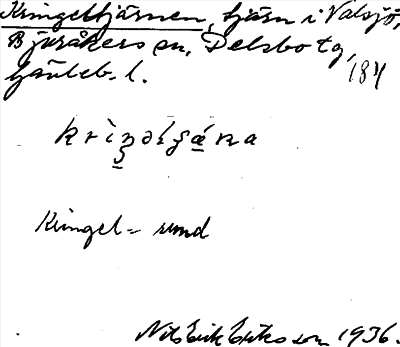 Kringeltjärnen, tjärn i Valsjö,
Bjuråkers sn, Delsbo tg,
Gävleb. l.
184
Kringel = rund
Nils Erik Eriksson 1936.